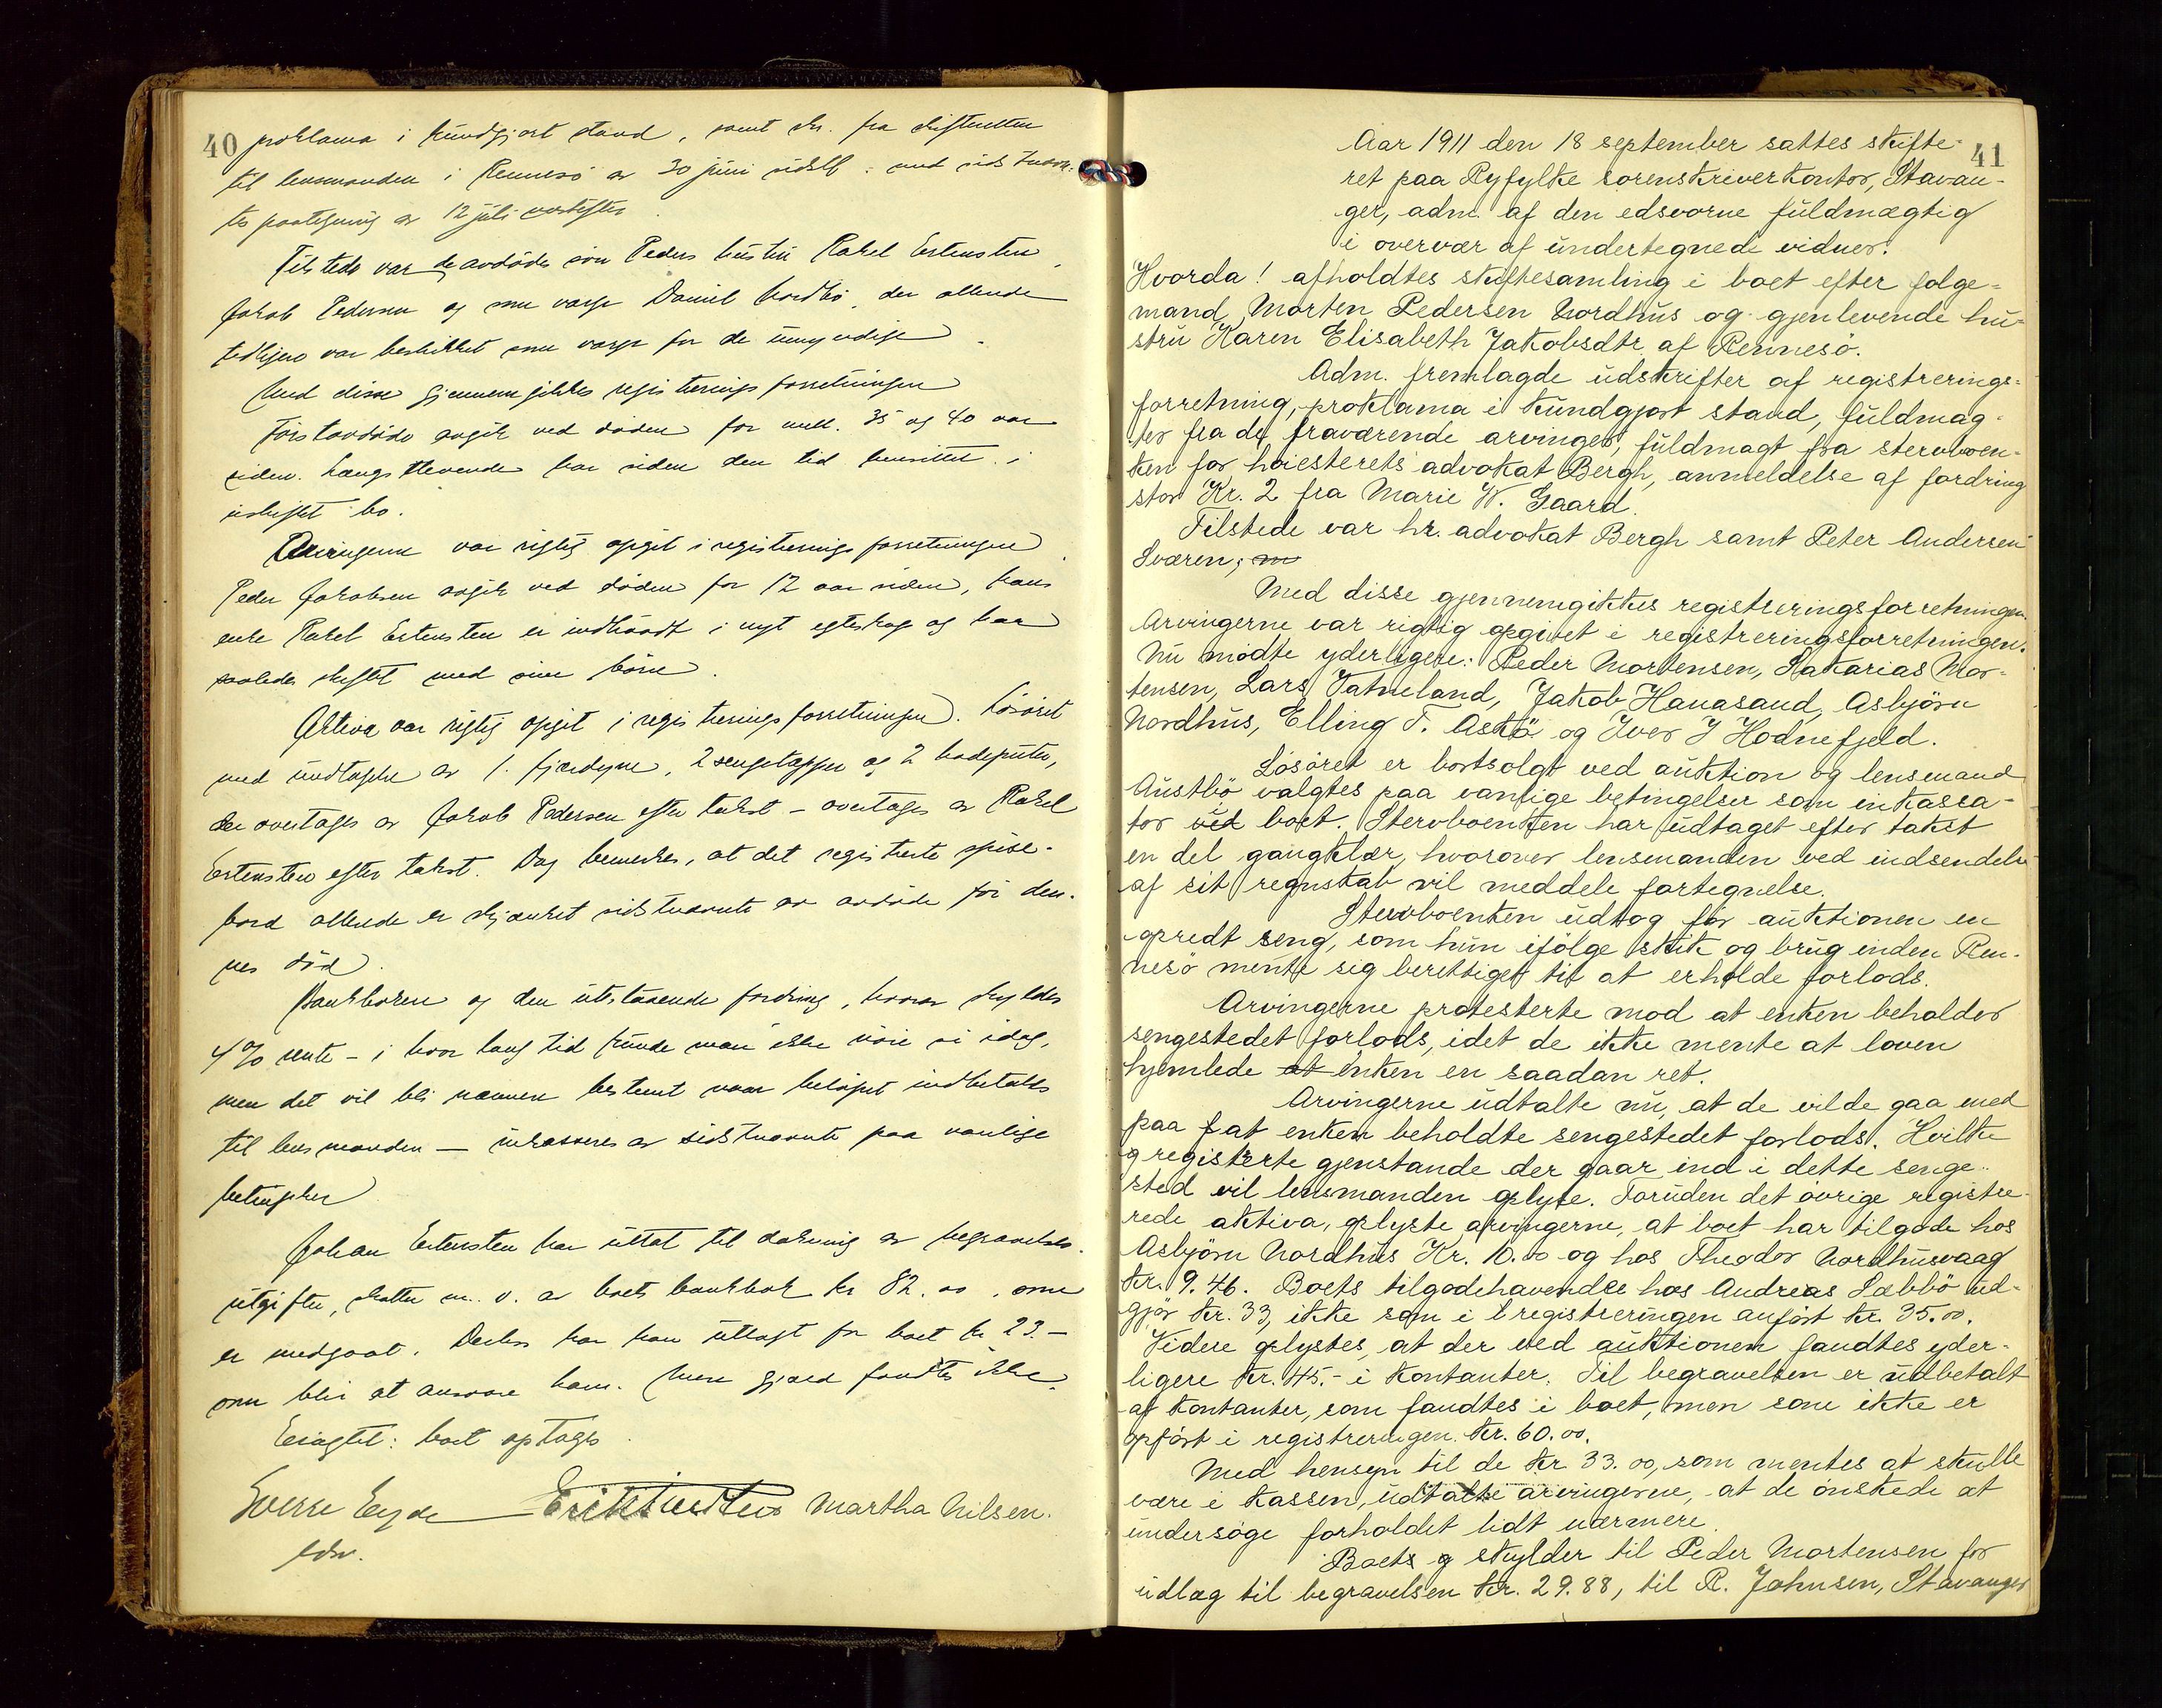 40
proklama i kundgjort stand, samt skr. fra skifteretten
til lensmanden i Rennesö av 30 juni sidstl. med sidstnævn-
tes paategning av 12 juli næstefter.
Tilstede var de avdödes sön Peders hustru Rakel Estensten,
Jakob Pedersen og som verge Daniel Nordbö, der allerede
tidligere var beskikket som verge for de umyndige.
Med disse gjennemgikkes registreringsforretningen
Förstavdöde avgik ved döden for mell. 35 og 40 aar
siden. Længstlevende har siden den tid hensittet i
uskiftet bo.
Arvingerne var rigtig opgit i registreringsforretningen.
Peder Jakobsen avgik ved döden for 12 aar siden, hans
enke Rakel Estensten er indtraadt i nyt egteskap og har
saaledes skiftet med sine börn.
Aktiva var rigtig opgit i registreringsforretningen. Lösöret
med undtagelse av 1 fjærdyne, 2 sengetæpper og 2 hodeputer,
der overtages av Jakob Pedersen efter takst – overtages av Rakel
Estensten efter takst. Dog bemerkes, at det registrerte spise-
bord allerede er skjænket sidstnævnte av avdöde för den-
nes död.
Bankboken og den utestaaende fordring, hvorav skyldes
4% rente – i hvor lang tid kunde man ikke nöie si idag,
men det vil bli nærmere bestemt naar belöpet indbetales
til lensmanden – inkasseres av sidstnævnte paa vanlige
betingelser
Johan Estensten har uttat til dækning av begravelses-
utgifter, skatter m. v. av boets bankbok kr 82.00, som
er medgaat. Desuten har han utlagt for boet kr 23.–
som blir at ansvare ham. Mere gjæld fandtes ikke.
Eragtet: boet optages.
Sverre Eyde
Martha Nilsen.
edsv.
41
Aar 1911 den 18 september sattes skifte-
ret paa Ryfylke sorenskriverkontor, Stavan-
ger, adm. af den edsvorne fuldmægtig
i overvær af undertegnede vidner.
Hvorda! afholdtes skiftesamling i boet efter folge-
mand Morten Pedersen Nordhus og gjenlevende hu-
stru Karen Elisabeth Jakobsdtr af Rennesö.
Adm. fremlagde udskrifter af registrerings-
forretning, proklama i kundgjort stand, fuldmag-
ter fra de fraværende arvinger, fuldmagt fra stervboen-
ken for höiesterets advokat Bergh, anmeldelse af fordring
stor Kr. 2 fra Marie W. Gaard.
Tilstede var hr. advokat Bergh samt Peter Andersen
Sværen; m
Med disse gjennemgikkes registreringsforretningen.
Arvingerne var rigtig opgivet i registreringsforretningen.
Nu mödte yderligere: Peder Mortensen, Sakarias Mor-
tensen, Lars Vatneland, Jakob Hanasand, Asbjörn
Nordhus, Elling T. Askö og Iver J Hodnefjeld.
Lösöret er bortsolgt ved auktion og lensmand
Austbö valgtes paa vanlige betingelser som inkassa-
tor ved boet. Stervboenken har udtaget efter takst
en del gangklær, hvorover lensmanden ved indsendelse
af sit regnskab vil meddele fortegnelse.
Stervboenken udtog för auktionen en
opredt seng, som hun ifölge skik og brug inden Ren-
nesö mente sig berettiget til at erholde forlods.
Arvingerne protesterte mod at enken beholder
sengestedet forlods, idet de ikke mente at loven
hjemlede at enken en saadan ret.
Arvingerne udtalte nu, at de vilde gaa med
paa f at enken beholdte sengestedet forlods. Hvilke
g registrerte gjenstande der gaar ind i dette senge-
sted vil lensmanden oplyse. Foruden det övrige registre-
rede aktiva, oplyste arvingerne, at boet har tilgode hos
Asbjörn Nordhus Kr. 10.00 og hos Theodor Nordhusvaag
Kr. 9.46. Boets tilgodehavende hos Andreas Læbbö ud-
gjör Kr. 33, ikke som i registreringen anfört Kr. 35.00.
Videre oplystes, at der ved auktionen fandtes yder-
ligere Kr. 45.– i kontanter. Til begravelsen er udbetalt
af kontanter, som fandtes i boet, men som ikke er
opfört i registreringen Kr. 60.00.
Med hensyn til de Kr 33.00, som mentes at skulle
være i kassen, udtalte arvingerne, at de önskede at
undersöge forholdet lidt nærmere.
Boets g skylder til Peder Mortensen for
udlæg til begravelsen Kr. 29.88, til R. Johnsen, Stavanger